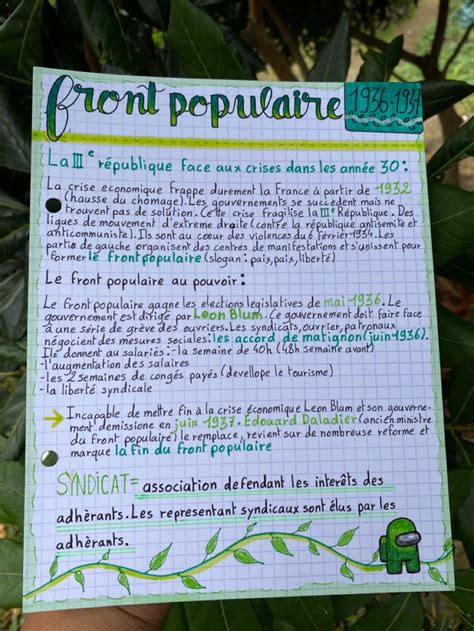 front populaire 1936-1937
La IIIe république face aux crises dans les année 30 :
La crise economique frappe durement la France à partir de 1932
(hausse du chomage). Les gouvernements se succèdent mais ne
trouvent pas de solution. Cette crise fragilise la IIIe République. Des
ligues de mouvement d'extreme droite (contre la république antisemite et
anticommuniste). Ils sont au cœur des violences du 6 fevrier 1934. Les
partis de gauche organisent des centres de manifestations et s'unissent pour
former le front populaire (slogan : paix, paix, liberté)
Le front populaire au pouvoir :
Le front populaire gagne les elections legislatives de mai 1936. Le
gouvernement est dirigé par Leon Blum. Ce gouvernement doit faire face
à une série de grève des ouvriers. Les syndicats, ouvrier, patronaux
négocient des mesures sociales : les accord de matignon (juin 1936).
Ils donnent au salariés : - la semaine de 40h (48h semaine avant)
- l'augmentation des salaires
- les 2 semaines de congés payés (devellope le tourisme)
- la liberté syndicale
→ Incapable de mettre fin à la crise économique Leon Blum et son gouverne-
ment demissione en juin 1937. Edouard Daladier (ancien ministre
du front populaire) le remplace, revient sur de nombreuse reforme et
marque la fin du front populaire
SYNDICAT = association defendant les interêts des
adhèrants. Les representant syndicaux sont élus par les
adhèrants.